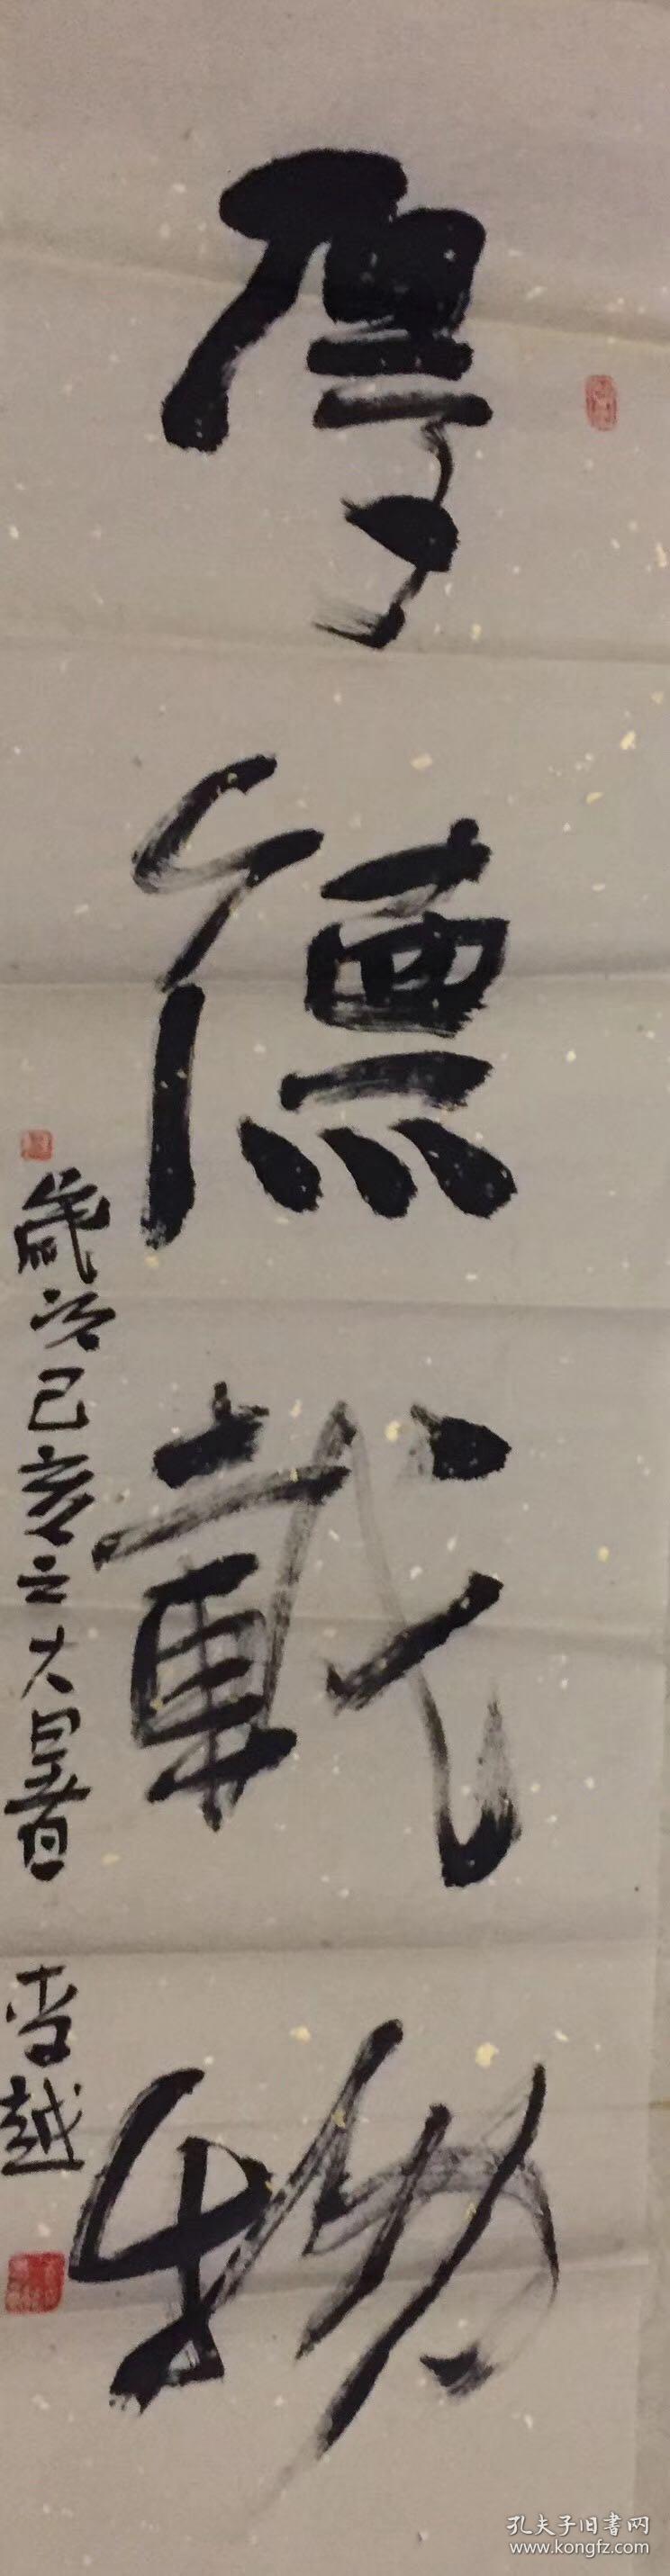 厚德载物
歲次己亥之大暑 李越
孔夫子旧書网
www.kongfz.com